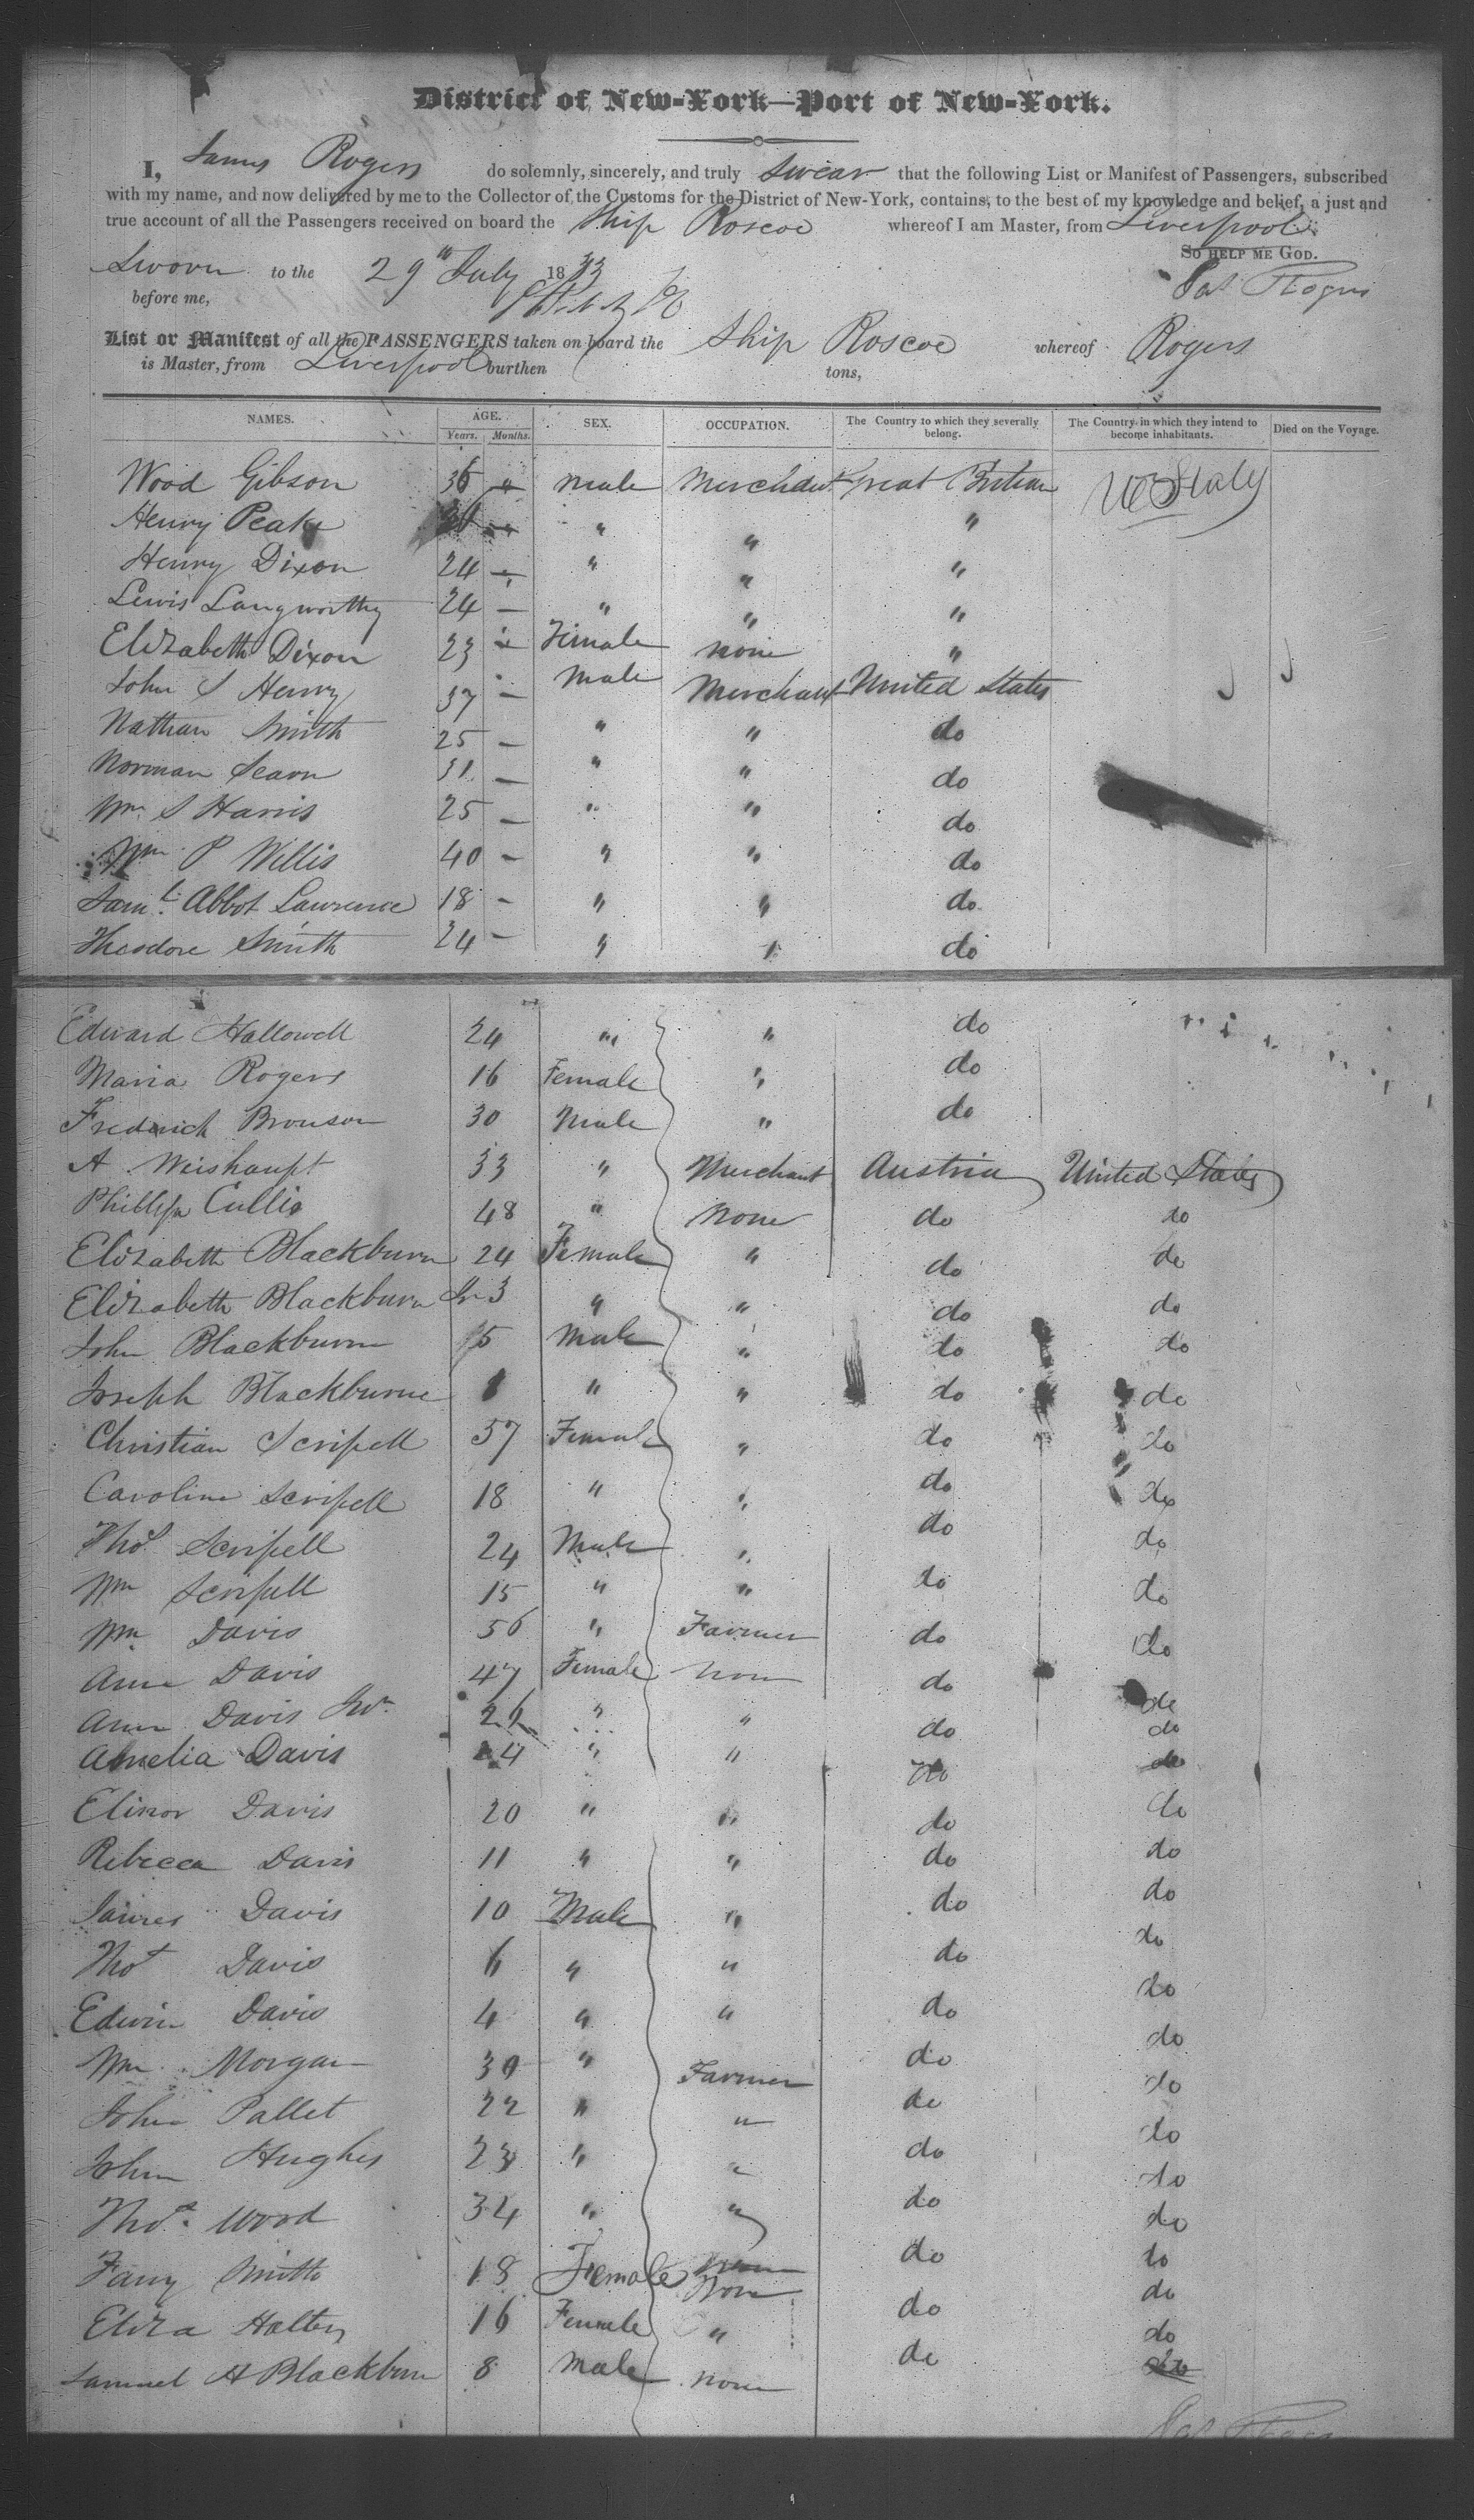 District of New-York—Port of New-York.
I, James Rogers do solemnly, sincerely, and truly Swear that the following List or Manifest of Passengers, subscribed
with my name, and now delivered by me to the Collector of the Customs for the District of New-York, contains, to the best of my knowledge and belief, a just and
true account of all the Passengers received on board the Ship Roscoe whereof I am Master, from Liverpool
So help me God.
Sworn to the 29th July 1833 Jas Rogers
before me,
List or Manifest of all the PASSENGERS taken on board the Ship Roscoe whereof Rogers
is Master, from Liverpool burthen tons,
NAMES. AGE. SEX. OCCUPATION. The Country to which they severally belong. The Country in which they intend to become inhabitants. Died on the Voyage.
Years. Months.
Wood Gibson 36 " male Merchant Great Britian U States
Henry Peake " " "
Henry Dixon 24 — " " "
Lewis Langworthy 24 — " " "
Elizabeth Dixon 23 — Female none "
John S Henry 37 — male Merchant United States
Nathan Smith 25 — " " do
Norman Searn 31 — " " do
Wm S Harris 25 — " " do
Wm P Willis 40 — " " do
Saml. Abbot Lawrence 18 — " " do
Theodore Smith 24 — " " do
Edward Hallowell 24 " " do
Maria Rogers 16 Female " do
Frederick Bronson 30 Male " do
A Weishaupt 33 " Merchant Austria United States
Phillip Cullis 48 " None do do
Elizabeth Blackburn 24 Female " do do
Elizabeth Blackburn Jr 3 " " do do
John Blackburn 5 Male " do do
Joseph Blackburne 1 " " do do
Christian Scripell 57 Female " do do
Caroline Scripell 18 " " do do
Thos Scripell 24 Male " do do
Wm Scripell 15 " " do do
Wm Davis 56 " Farmer do do
Ann Davis 47 Female None do do
Ann Davis Jnr. 26 " " do do
Amelia Davis 24 " " do do
Elinor Davis 20 " " do do
Rebecca Davis 11 " " do do
James Davis 10 Male " do do
Thos Davis 6 " " do do
Edwin Davis 4 " " do do
Wm Morgan 30 " Farmer do do
John Pallet 22 " " do do
John Hughes 23 " " do do
Thos. Wood 34 " " do do
Fany Smith 18 Female None do do
Eliza Halten 16 Female " do do
Samuel H Blackburn 8 Male None do do
Jas Rogers